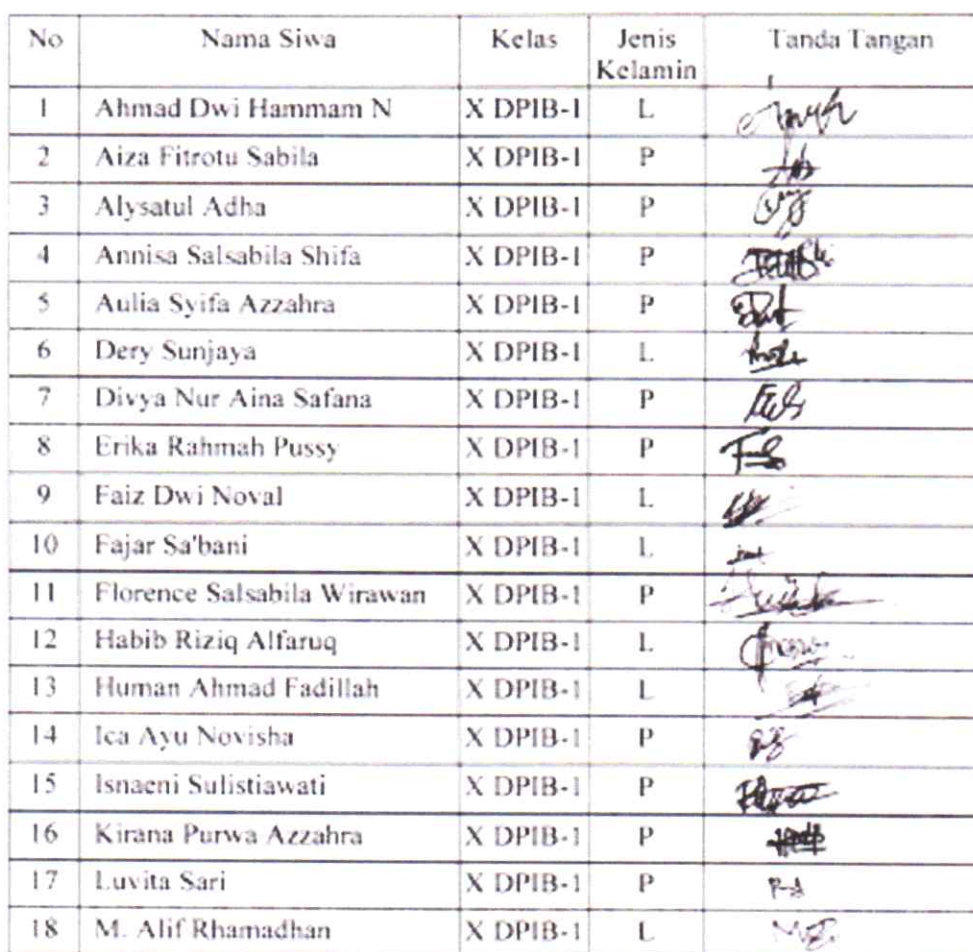 No Nama Siwa Kelas Jenis Kelamin Tanda Tangan
1 Ahmad Dwi Hammam N X DPIB-1 L
2 Aiza Fitrotu Sabila X DPIB-1 P
3 Alysatul Adha X DPIB-1 P
4 Annisa Salsabila Shifa X DPIB-1 P
5 Aulia Syifa Azzahra X DPIB-1 P
6 Dery Sunjaya X DPIB-1 L
7 Divya Nur Aina Safana X DPIB-1 P
8 Erika Rahmah Pussy X DPIB-1 P
9 Faiz Dwi Noval X DPIB-1 L
10 Fajar Sa'bani X DPIB-1 L
11 Florence Salsabila Wirawan X DPIB-1 P
12 Habib Riziq Alfaruq X DPIB-1 L
13 Human Ahmad Fadillah X DPIB-1 L
14 Ica Ayu Novisha X DPIB-1 P
15 Isnaeni Sulistiawati X DPIB-1 P
16 Kirana Purwa Azzahra X DPIB-1 P
17 Luvita Sari X DPIB-1 P
18 M. Alif Rhamadhan X DPIB-1 L